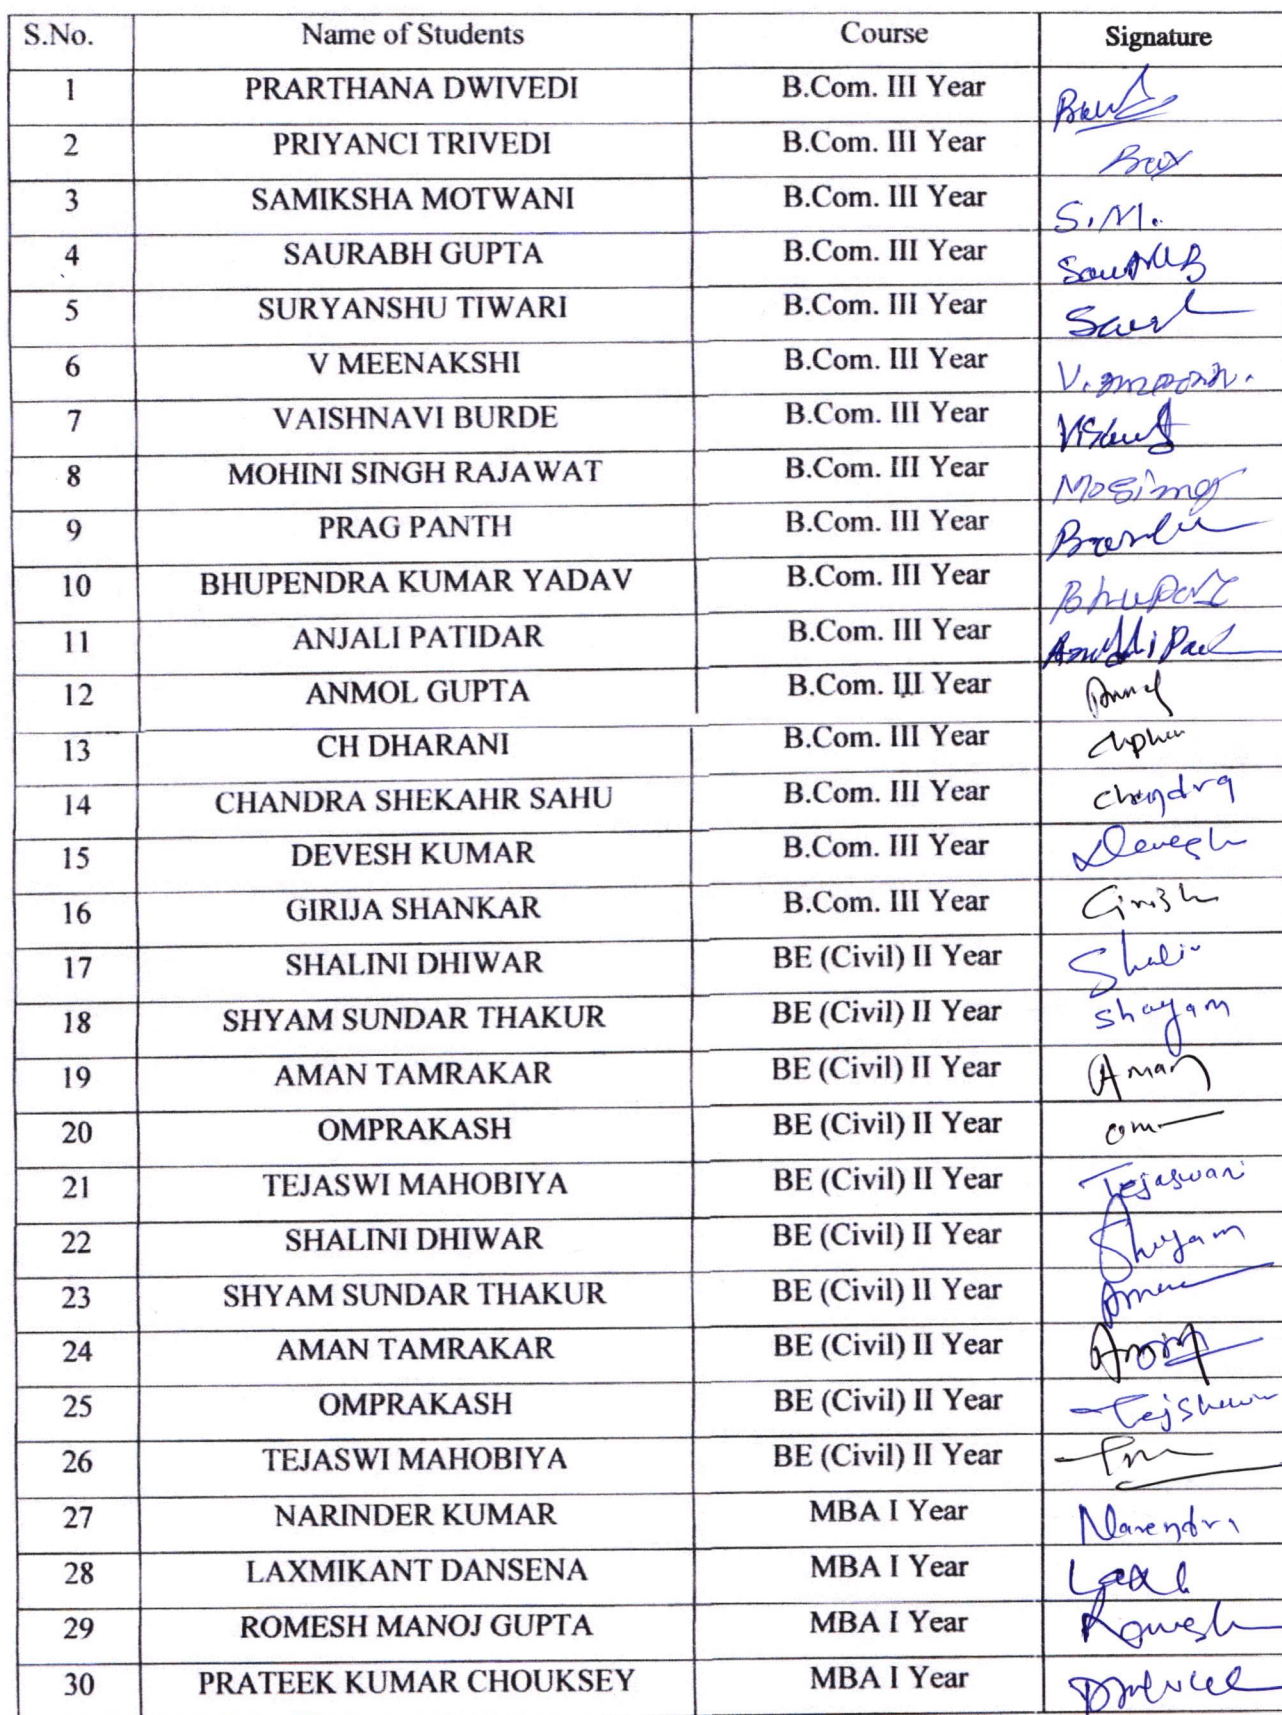 S.No. Name of Students Course Signature
1 PRARTHANA DWIVEDI B.Com. III Year
2 PRIYANCI TRIVEDI B.Com. III Year
3 SAMIKSHA MOTWANI B.Com. III Year S.M.
4 SAURABH GUPTA B.Com. III Year
5 SURYANSHU TIWARI B.Com. III Year
6 V MEENAKSHI B.Com. III Year
7 VAISHNAVI BURDE B.Com. III Year
8 MOHINI SINGH RAJAWAT B.Com. III Year
9 PRAG PANTH B.Com. III Year
10 BHUPENDRA KUMAR YADAV B.Com. III Year
11 ANJALI PATIDAR B.Com. III Year
12 ANMOL GUPTA B.Com. III Year
13 CH DHARANI B.Com. III Year
14 CHANDRA SHEKAHR SAHU B.Com. III Year Chandra
15 DEVESH KUMAR B.Com. III Year Devesh
16 GIRIJA SHANKAR B.Com. III Year
17 SHALINI DHIWAR BE (Civil) II Year
18 SHYAM SUNDAR THAKUR BE (Civil) II Year Shayam
19 AMAN TAMRAKAR BE (Civil) II Year Aman
20 OMPRAKASH BE (Civil) II Year om
21 TEJASWI MAHOBIYA BE (Civil) II Year Tejaswani
22 SHALINI DHIWAR BE (Civil) II Year Shyam
23 SHYAM SUNDAR THAKUR BE (Civil) II Year
24 AMAN TAMRAKAR BE (Civil) II Year
25 OMPRAKASH BE (Civil) II Year
26 TEJASWI MAHOBIYA BE (Civil) II Year
27 NARINDER KUMAR MBA I Year Narendra
28 LAXMIKANT DANSENA MBA I Year
29 ROMESH MANOJ GUPTA MBA I Year Romesh
30 PRATEEK KUMAR CHOUKSEY MBA I Year